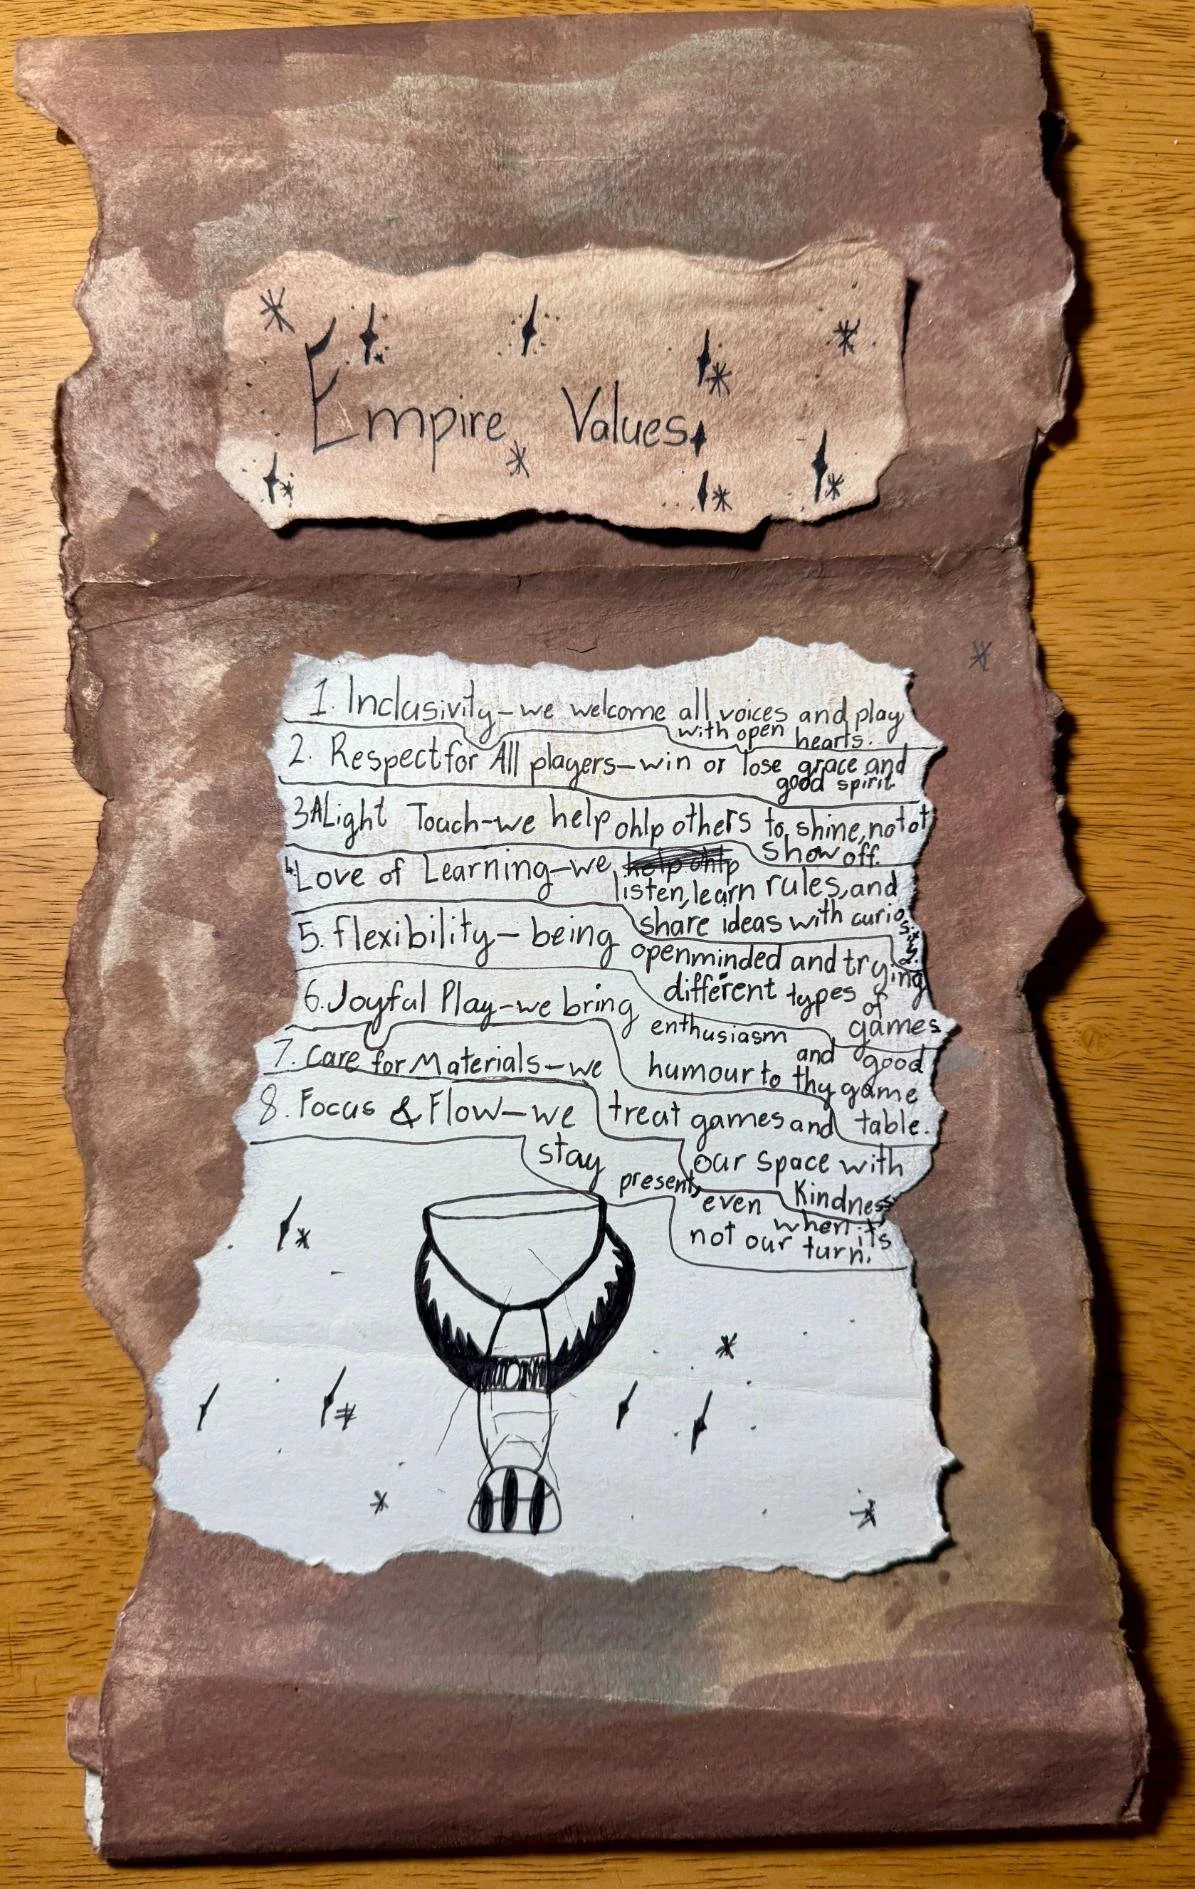 Empire Values
1. Inclusivity-we welcome all voices and play
with open hearts.
2. Respect for All players-win or lose grace and
good spirit.
3 A Light Touch-we help ohlp others to shine, not ot
show off.
4 Love of Learning-we help ohlp
listen, learn rules, and
share ideas with curiosity.
5. Flexibility- being
openminded and trying
different types of
games
6. Joyful Play-we bring
enthusiasm and good
humour to thy game
table.
7. Care for Materials-we
treat games and
our space with
Kindness
8. Focus & Flow-we
stay present,
even when it's
not our turn.